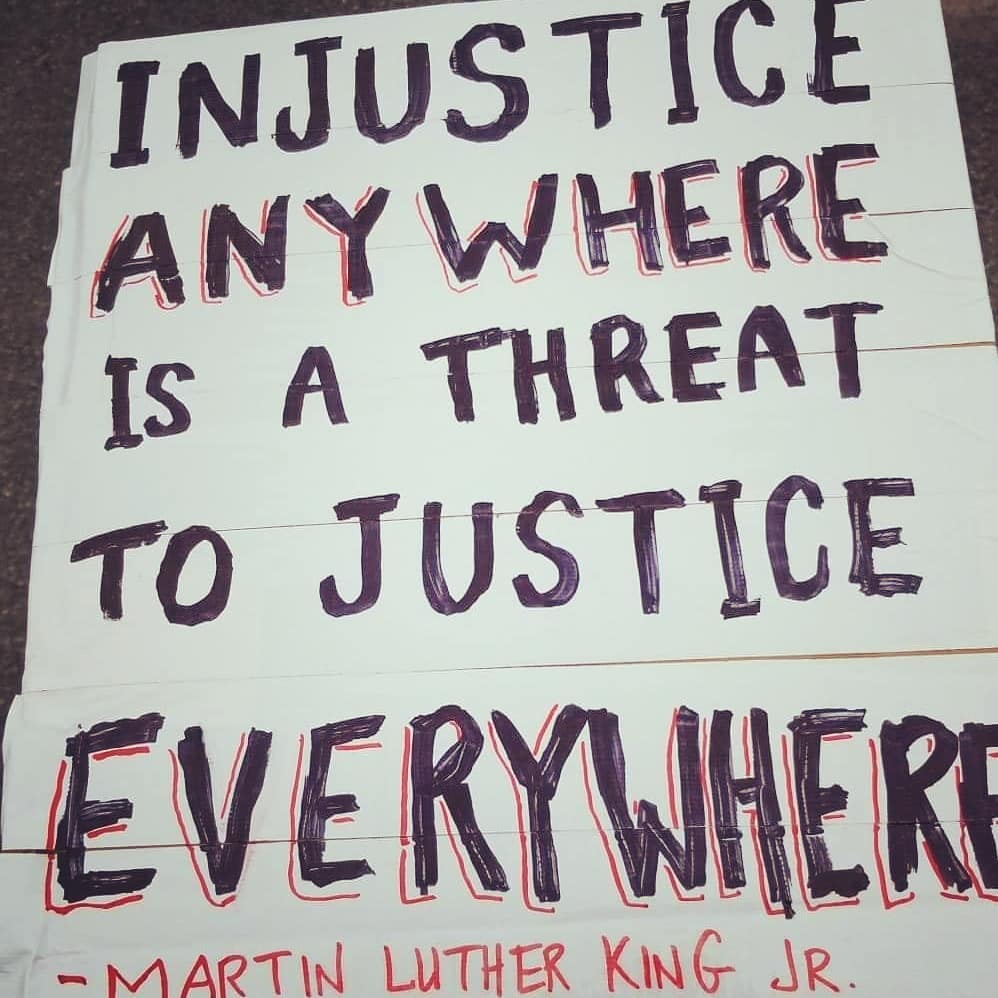 INJUSTICE
ANYWHERE
IS A THREAT
TO JUSTICE
EVERYWHERE
- MARTIN LUTHER KING JR.